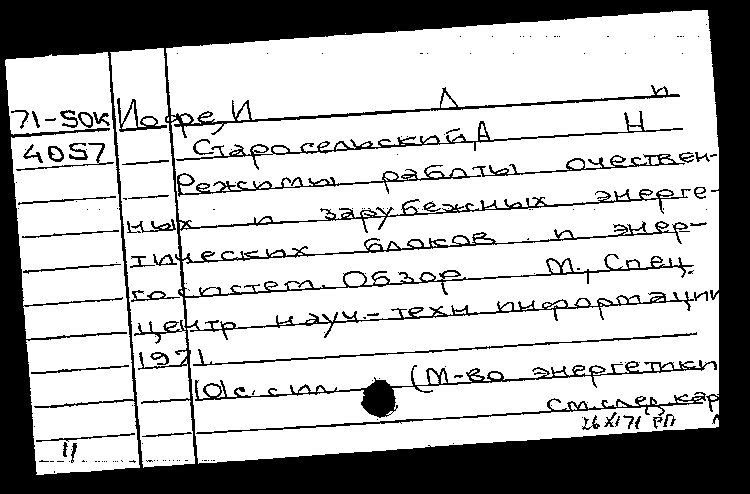 71-50К Иоффе, И Л и
4057 Старосельский, А Н
Режимы работы очествен-
ных и зарубежных энерге-
тических блоков и энер-
госистем. Обзор М., Спец.
центр науч.-техн. информации
1971.
101с. с ил. (М-во энергетики
см. след. кар
26 XI 71
11